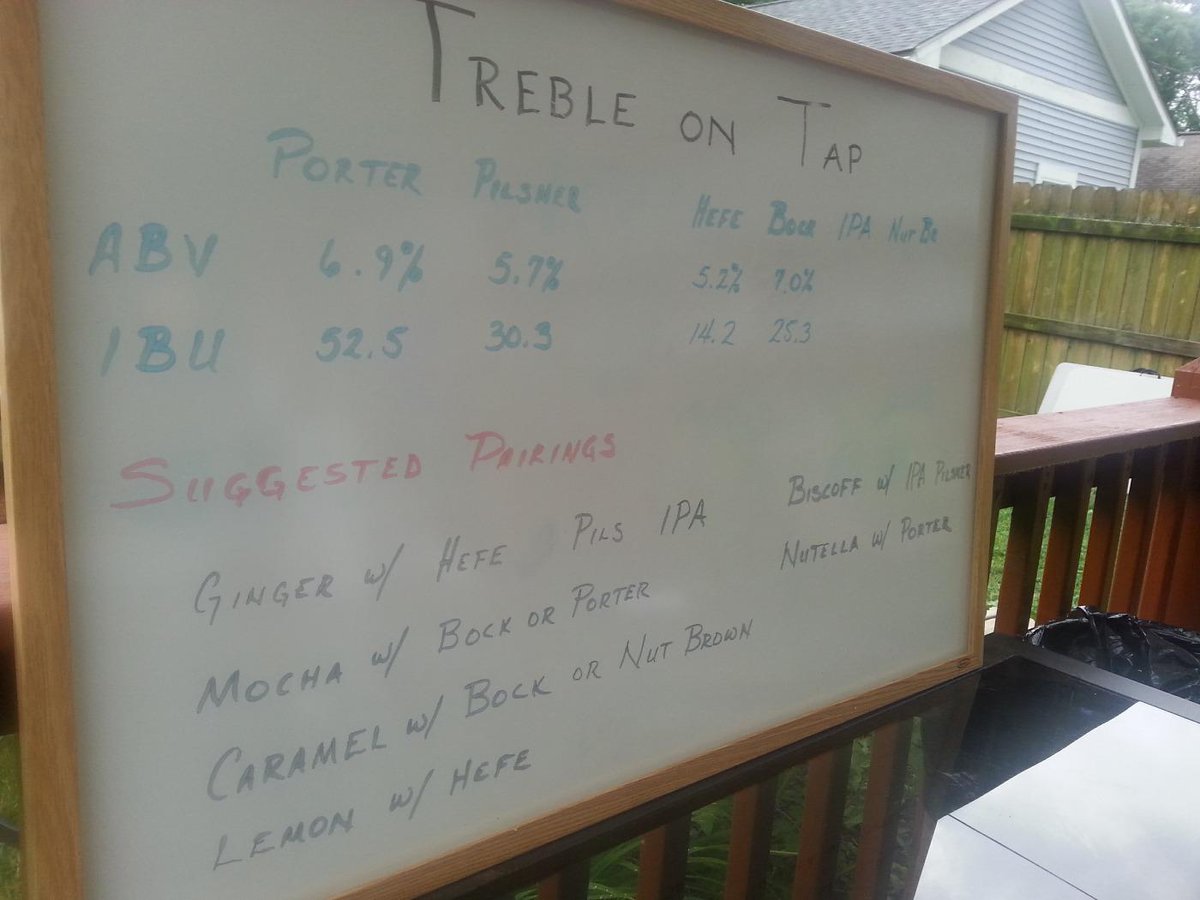 TREBLE ON TAP
PORTER PILSNER HEFE BOCK IPA NUT BR
ABV 6.9% 5.7% 5.2% 7.0%
IBU 52.5 30.3 14.2 25.3
SUGGESTED PAIRINGS
GINGER w/ HEFE PILS IPA
MOCHA w/ BOCK OR PORTER
CARAMEL w/ BOCK OR NUT BROWN
LEMON w/ HEFE
BISCOFF w/ IPA PILSNER
NUTELLA w/ PORTER